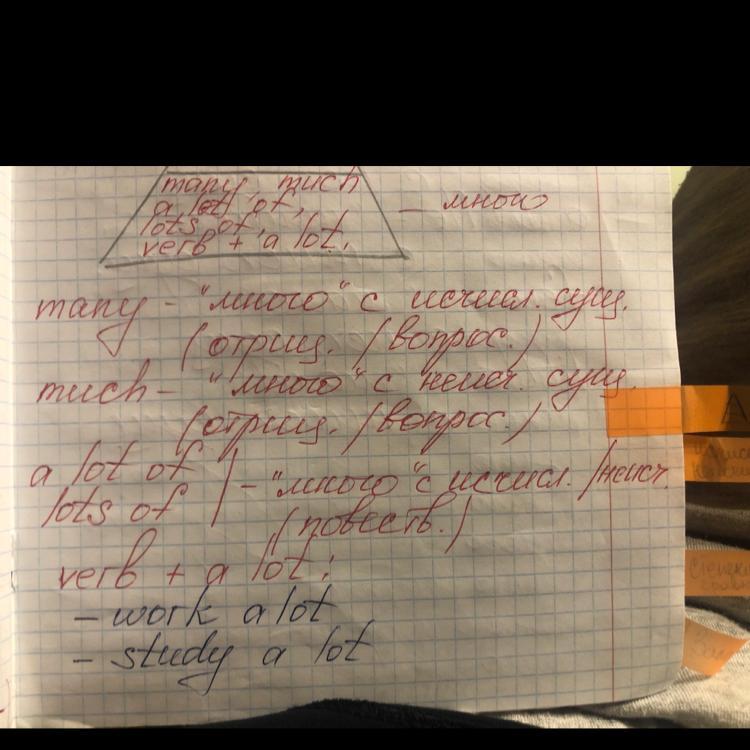 many, much
a lot of,
lots of,
verb + a lot.
– много
many – "много" с исчисл. сущ.
(отриц. / вопрос.)
much – "много" с неисч. сущ.
(отриц. / вопрос.)
a lot of
lots of
– "много" с исчисл. / неисч.
(повеств.)
verb + a lot:
– work a lot
– study a lot
A